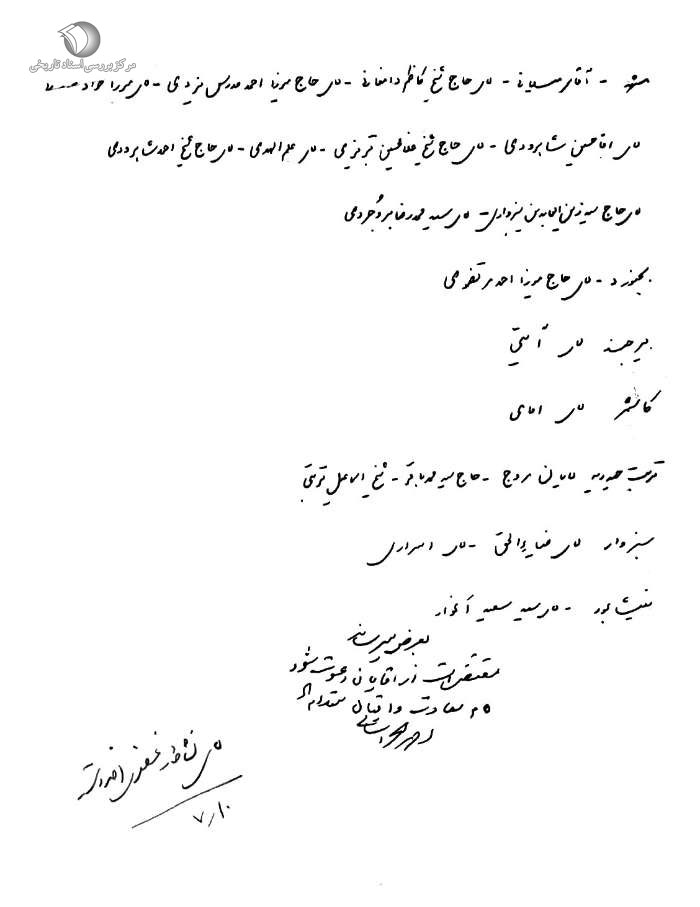 مرکز بررسی اسناد تاریخی
مشهد - آقای - آقای حاج شیخ کاظم دامغانی - آقای حاج میرزا احمد مدرس یزدی - آقای میرزا جواد
آقای آقا حسین شاهرودی - آقای حاج شیخ غلامحسین تبریزی - آقای علم الهدی - آقای حاج شیخ احمد شاهرودی
آقای حاج سید زین العابدین سبزواری - آقای سید محمد رضا بروجردی
بجنورد - آقای حاج میرزا احمد مرتضوی
بیرجند آقای آیتی
کاشمر آقای امامی
تربت حیدریه آقایان مروج - حاج سید محمد باقر - شیخ اسماعیل تربتی
سبزوار آقای ضیاء الحق - آقای اسراری
نیشابور - آقای سید سعید
بعرض میرساند
مقتضی است از آقایان دعوت شود
سعادت و اقبال
آقای
۷/۱۰